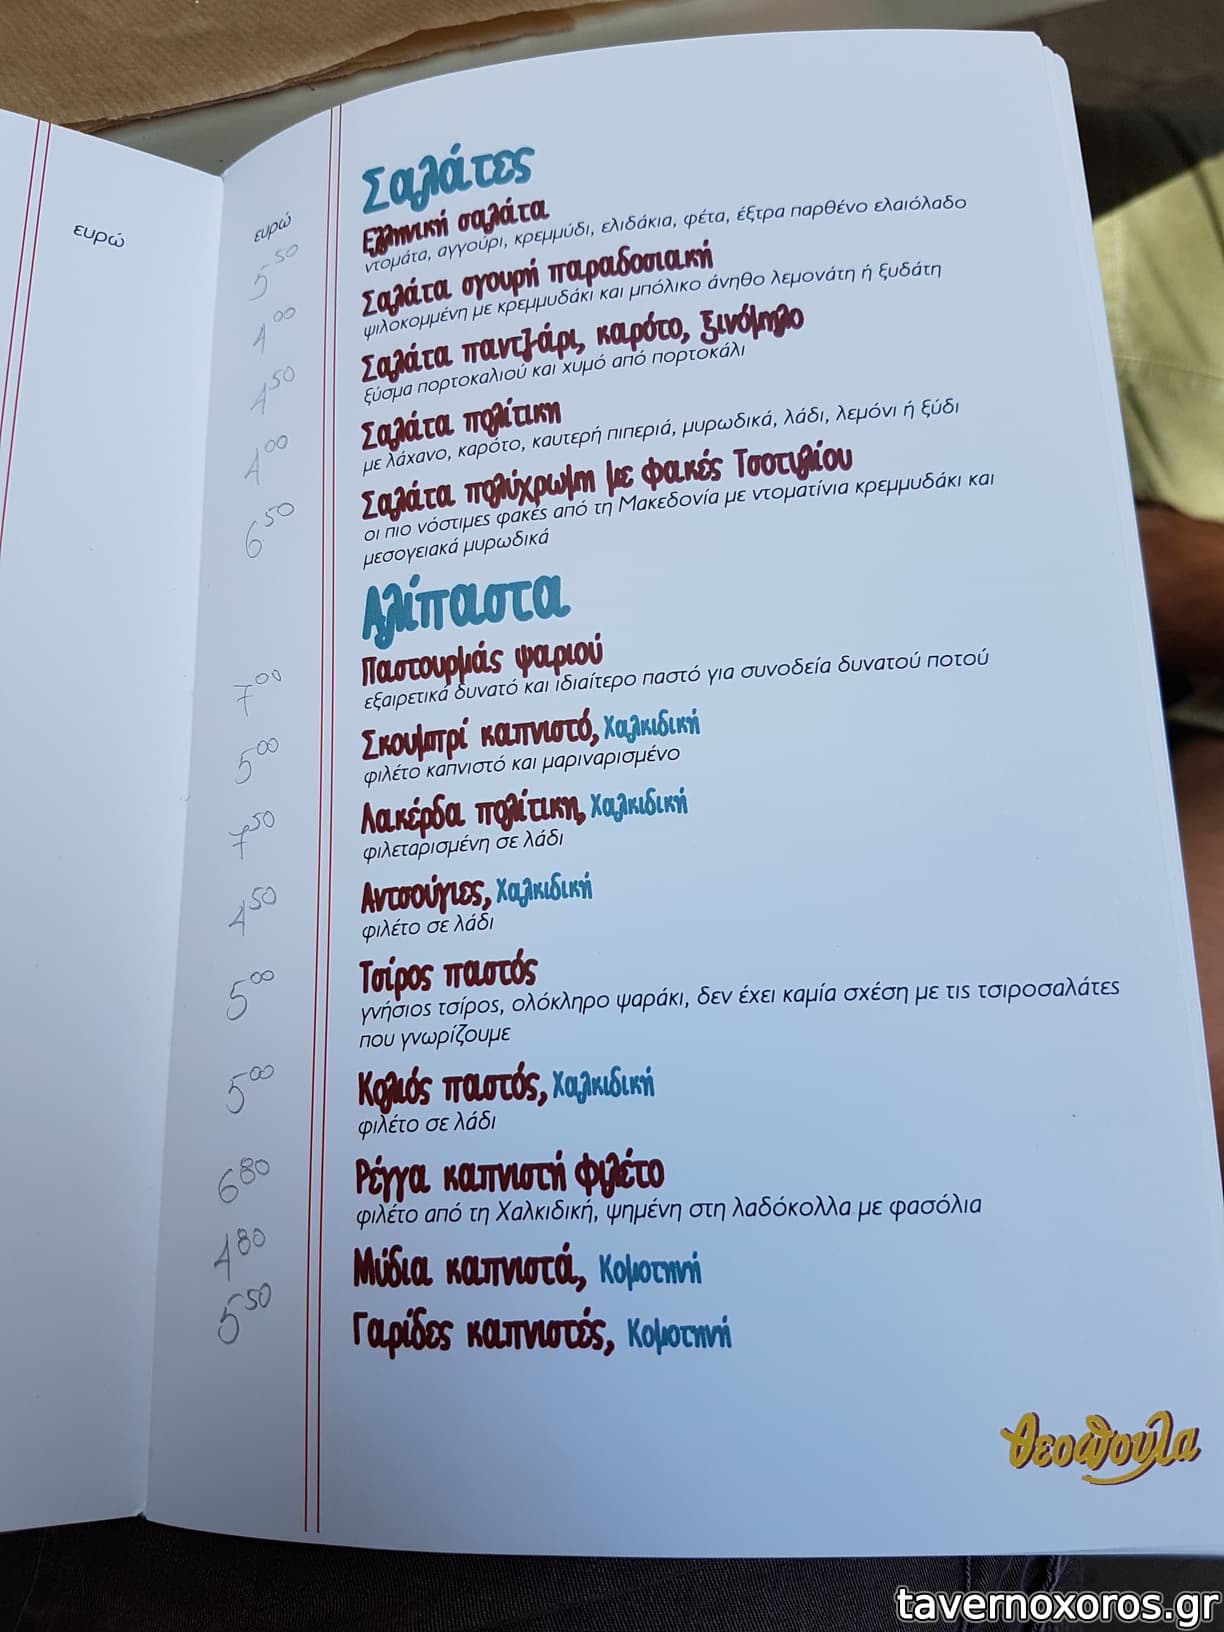 ευρώ
ευρώ
Σαλάτες
5 50 Ελληνική σαλάτα
ντομάτα, αγγούρι, κρεμμύδι, ελιδάκια, φέτα, έξτρα παρθένο ελαιόλαδο
4 00 Σαλάτα σγουρή παραδοσιακή
ψιλοκομμένη με κρεμμυδάκι και μπόλικο άνηθο λεμονάτη ή ξυδάτη
4 50 Σαλάτα παντζάρι, καρότο, ξινόμηλο
ξύσμα πορτοκαλιού και χυμό από πορτοκάλι
4 00 Σαλάτα πολίτικη
με λάχανο, καρότο, καυτερή πιπεριά, μυρωδικά, λάδι, λεμόνι ή ξύδι
6.50 Σαλάτα πολύχρωμη με φακές Τσοτυλίου
οι πιο νόστιμες φακές από τη Μακεδονία με ντοματίνια κρεμμυδάκι και
μεσογειακά μυρωδικά
Αλίπαστα
7 00 Παστουρμάς ψαριού
εξαιρετικά δυνατό και ιδιαίτερο παστό για συνοδεία δυνατού ποτού
5 00 Σκουμπρί καπνιστό, Χαλκιδική
φιλέτο καπνιστό και μαριναρισμένο
7 50 Λακέρδα πολίτικη, Χαλκιδική
φιλεταρισμένη σε λάδι
4 50 Αντσούγιες, Χαλκιδική
φιλέτο σε λάδι
5 00 Τσίρος παστός
γνήσιος τσίρος, ολόκληρο ψαράκι, δεν έχει καμία σχέση με τις τσιροσαλάτες
που γνωρίζουμε
5 00 Κολιός παστός, Χαλκιδική
φιλέτο σε λάδι
6 80 Ρέγγα καπνιστή φιλέτο
φιλέτο από τη Χαλκιδική, ψημένη στη λαδόκολλα με φασόλια
4 80 Μύδια καπνιστά, Κομοτηνή
5 50 Γαρίδες καπνιστές, Κομοτηνή
θεοπούλα
tavernoxoros.gr